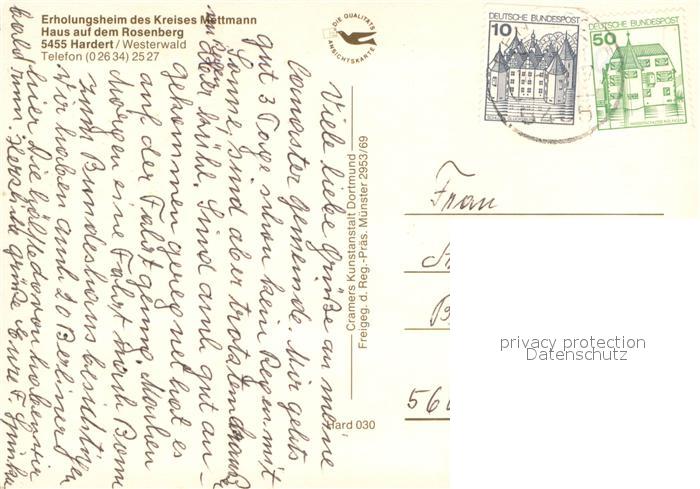 Erholungsheim des Kreises Mettmann
Haus auf dem Rosenberg
5455 Hardert / Westerwald
Telefon (0 26 34) 25 27
DIE QUALITÄTS
ANSICHTSKARTE
DEUTSCHE BUNDESPOST
10
DEUTSCHE BUNDESPOST
50
Viele liebe Grüße an meine
gemeinde. Mir gehts
gut 3 Tage schon kein Regen mit
Sonne, sind aber trotzdem
kühl. Sind auch gut an-
gekommen geregnet hat es
auf der Fahrt genug. Machen
Morgen eine Fahrt durch Bonn
zum Bundeshaus besichtigen
Wir haben auch 20 Berliner
hier die hälfte davon haben wir
Herzliche grüße Eure F.
Cramers Kunstanstalt Dortmund
Freigeg. d. Reg.-Präs. Münster 2953/69
Hard 030
Frau
56
privacy protection
Datenschutz